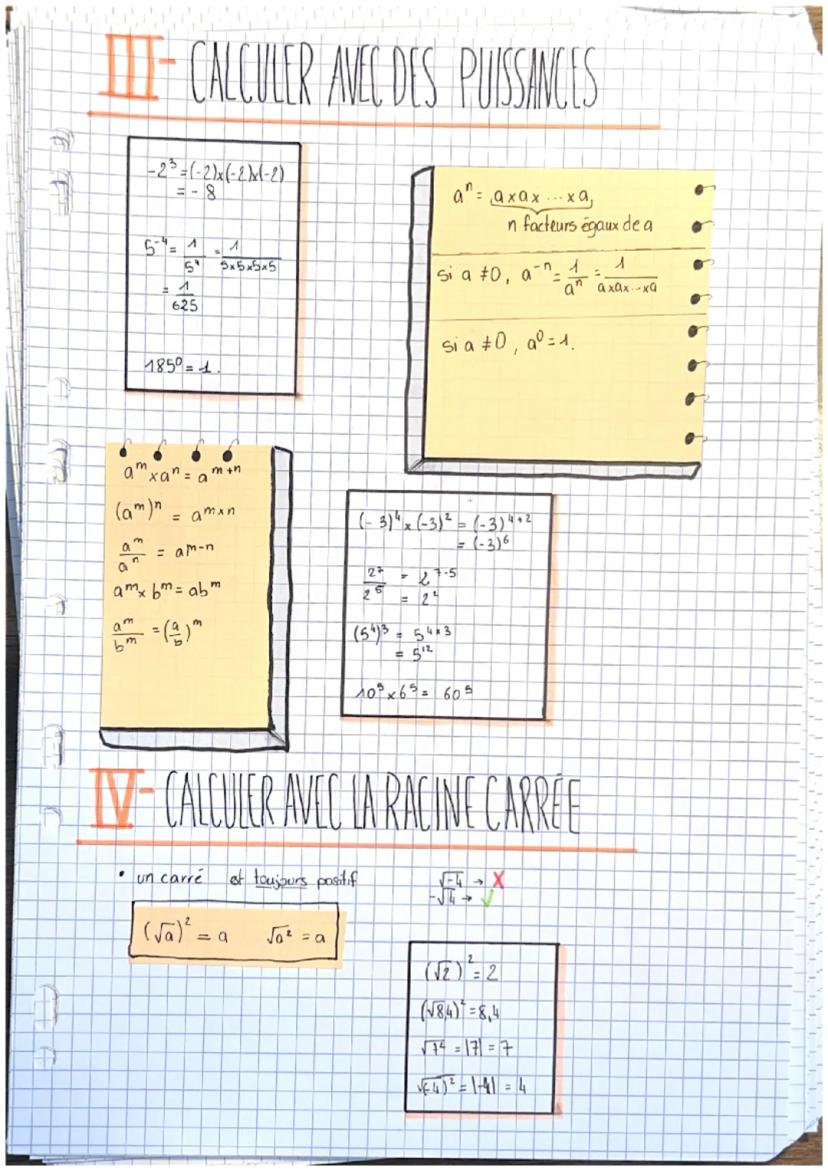 III- CALCULER AVEC DES PUISSANCES
-2³ = (-2)x(-2)x(-2)
= - 8
5⁻⁴ = 1/5⁴ = 1/(5x5x5x5)
= 1/625
185⁰ = 1.
aⁿ = a x a x ... x a
n facteurs égaux de a
si a ≠ 0, a⁻ⁿ = 1/aⁿ = 1/(axax...xa)
si a ≠ 0, a⁰ = 1.
aᵐ x aⁿ = aᵐ⁺ⁿ
(aᵐ)ⁿ = aᵐˣⁿ
aᵐ/aⁿ = aᵐ⁻ⁿ
aᵐ x bᵐ = abᵐ
aᵐ/bᵐ = (a/b)ᵐ
(-3)⁴ x (-3)² = (-3)⁴⁺²
= (-3)⁶
2⁷/2⁵ = 2⁷⁻⁵
= 2²
(5⁴)³ = 5⁴ˣ³
= 5¹²
10⁵ x 6⁵ = 60⁵
IV- CALCULER AVEC LA RACINE CARRÉE
• un carré est toujours positif
√-4 → X
-√4 → ✓
(√a)² = a √a² = a
(√2)² = 2
(√8,4)² = 8,4
√7² = |7| = 7
√(-4)² = |-4| = 4